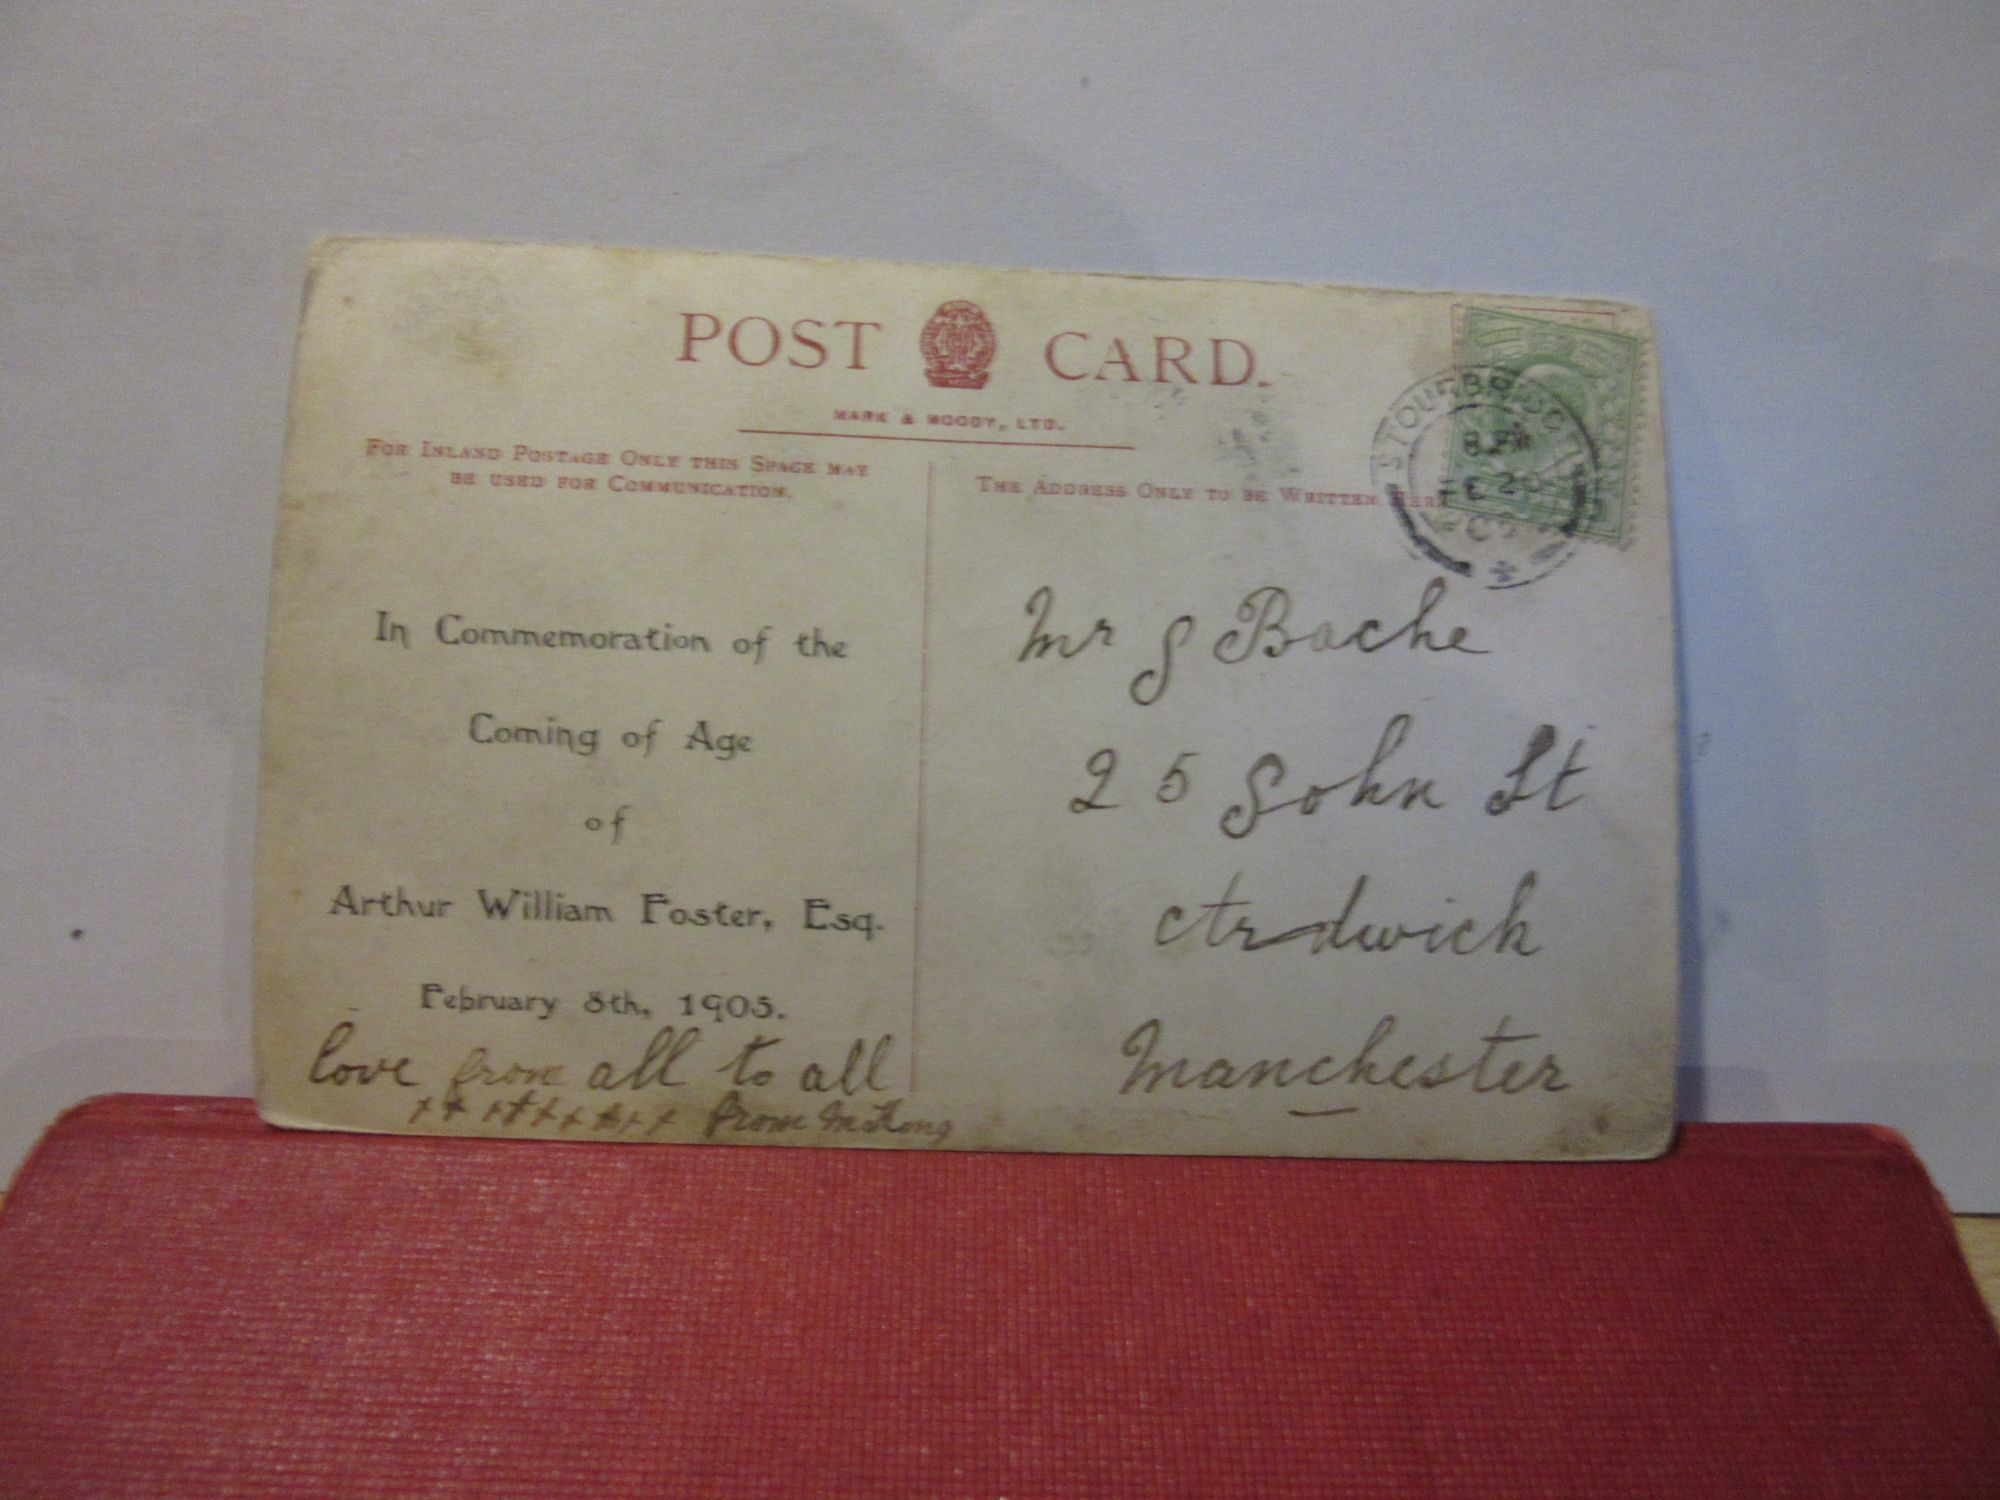 POST CARD.
MARK & MOODY, LTD.
FOR INLAND POSTAGE ONLY THIS SPACE MAY
BE USED FOR COMMUNICATION.
THE ADDRESS ONLY TO BE WRITTEN HERE
STOURBRIDGE
8 PM
FE 20
In Commemoration of the
Coming of Age
of
Arthur William Foster, Esq.
February 8th, 1905.
love from all to all
from
Mr J Bache
25 John St
Ardwick
Manchester